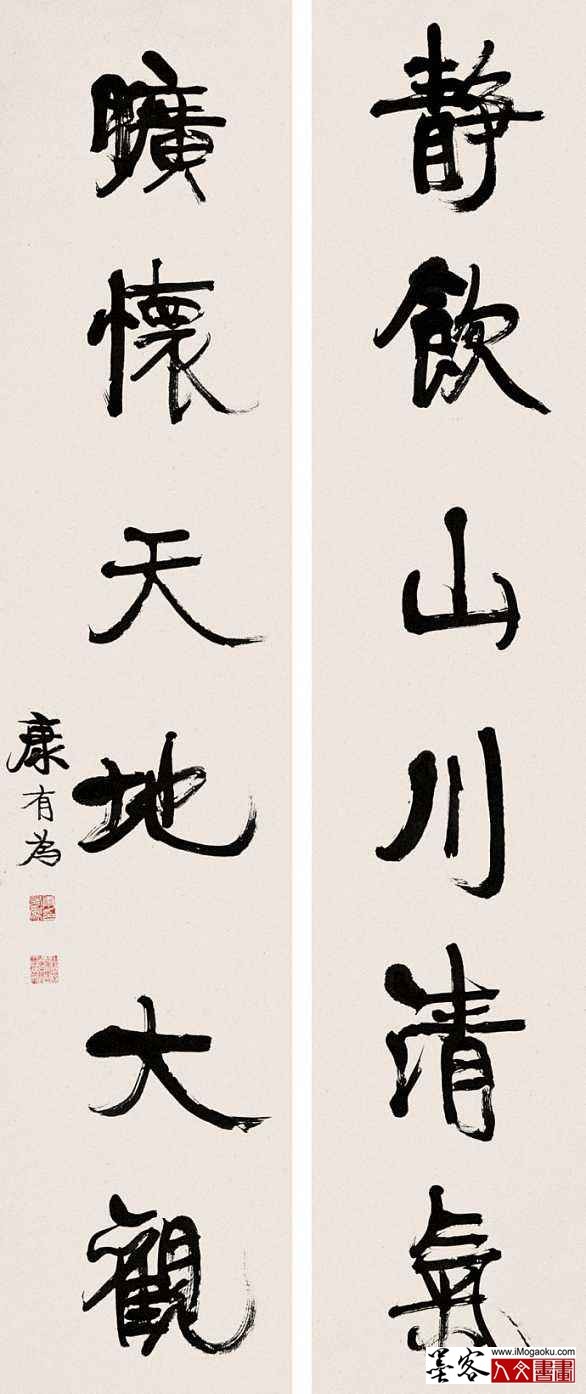 静飲山川清氣
曠懷天地大觀
康有為
www.iMogaoku.com
墨客
人文書畫